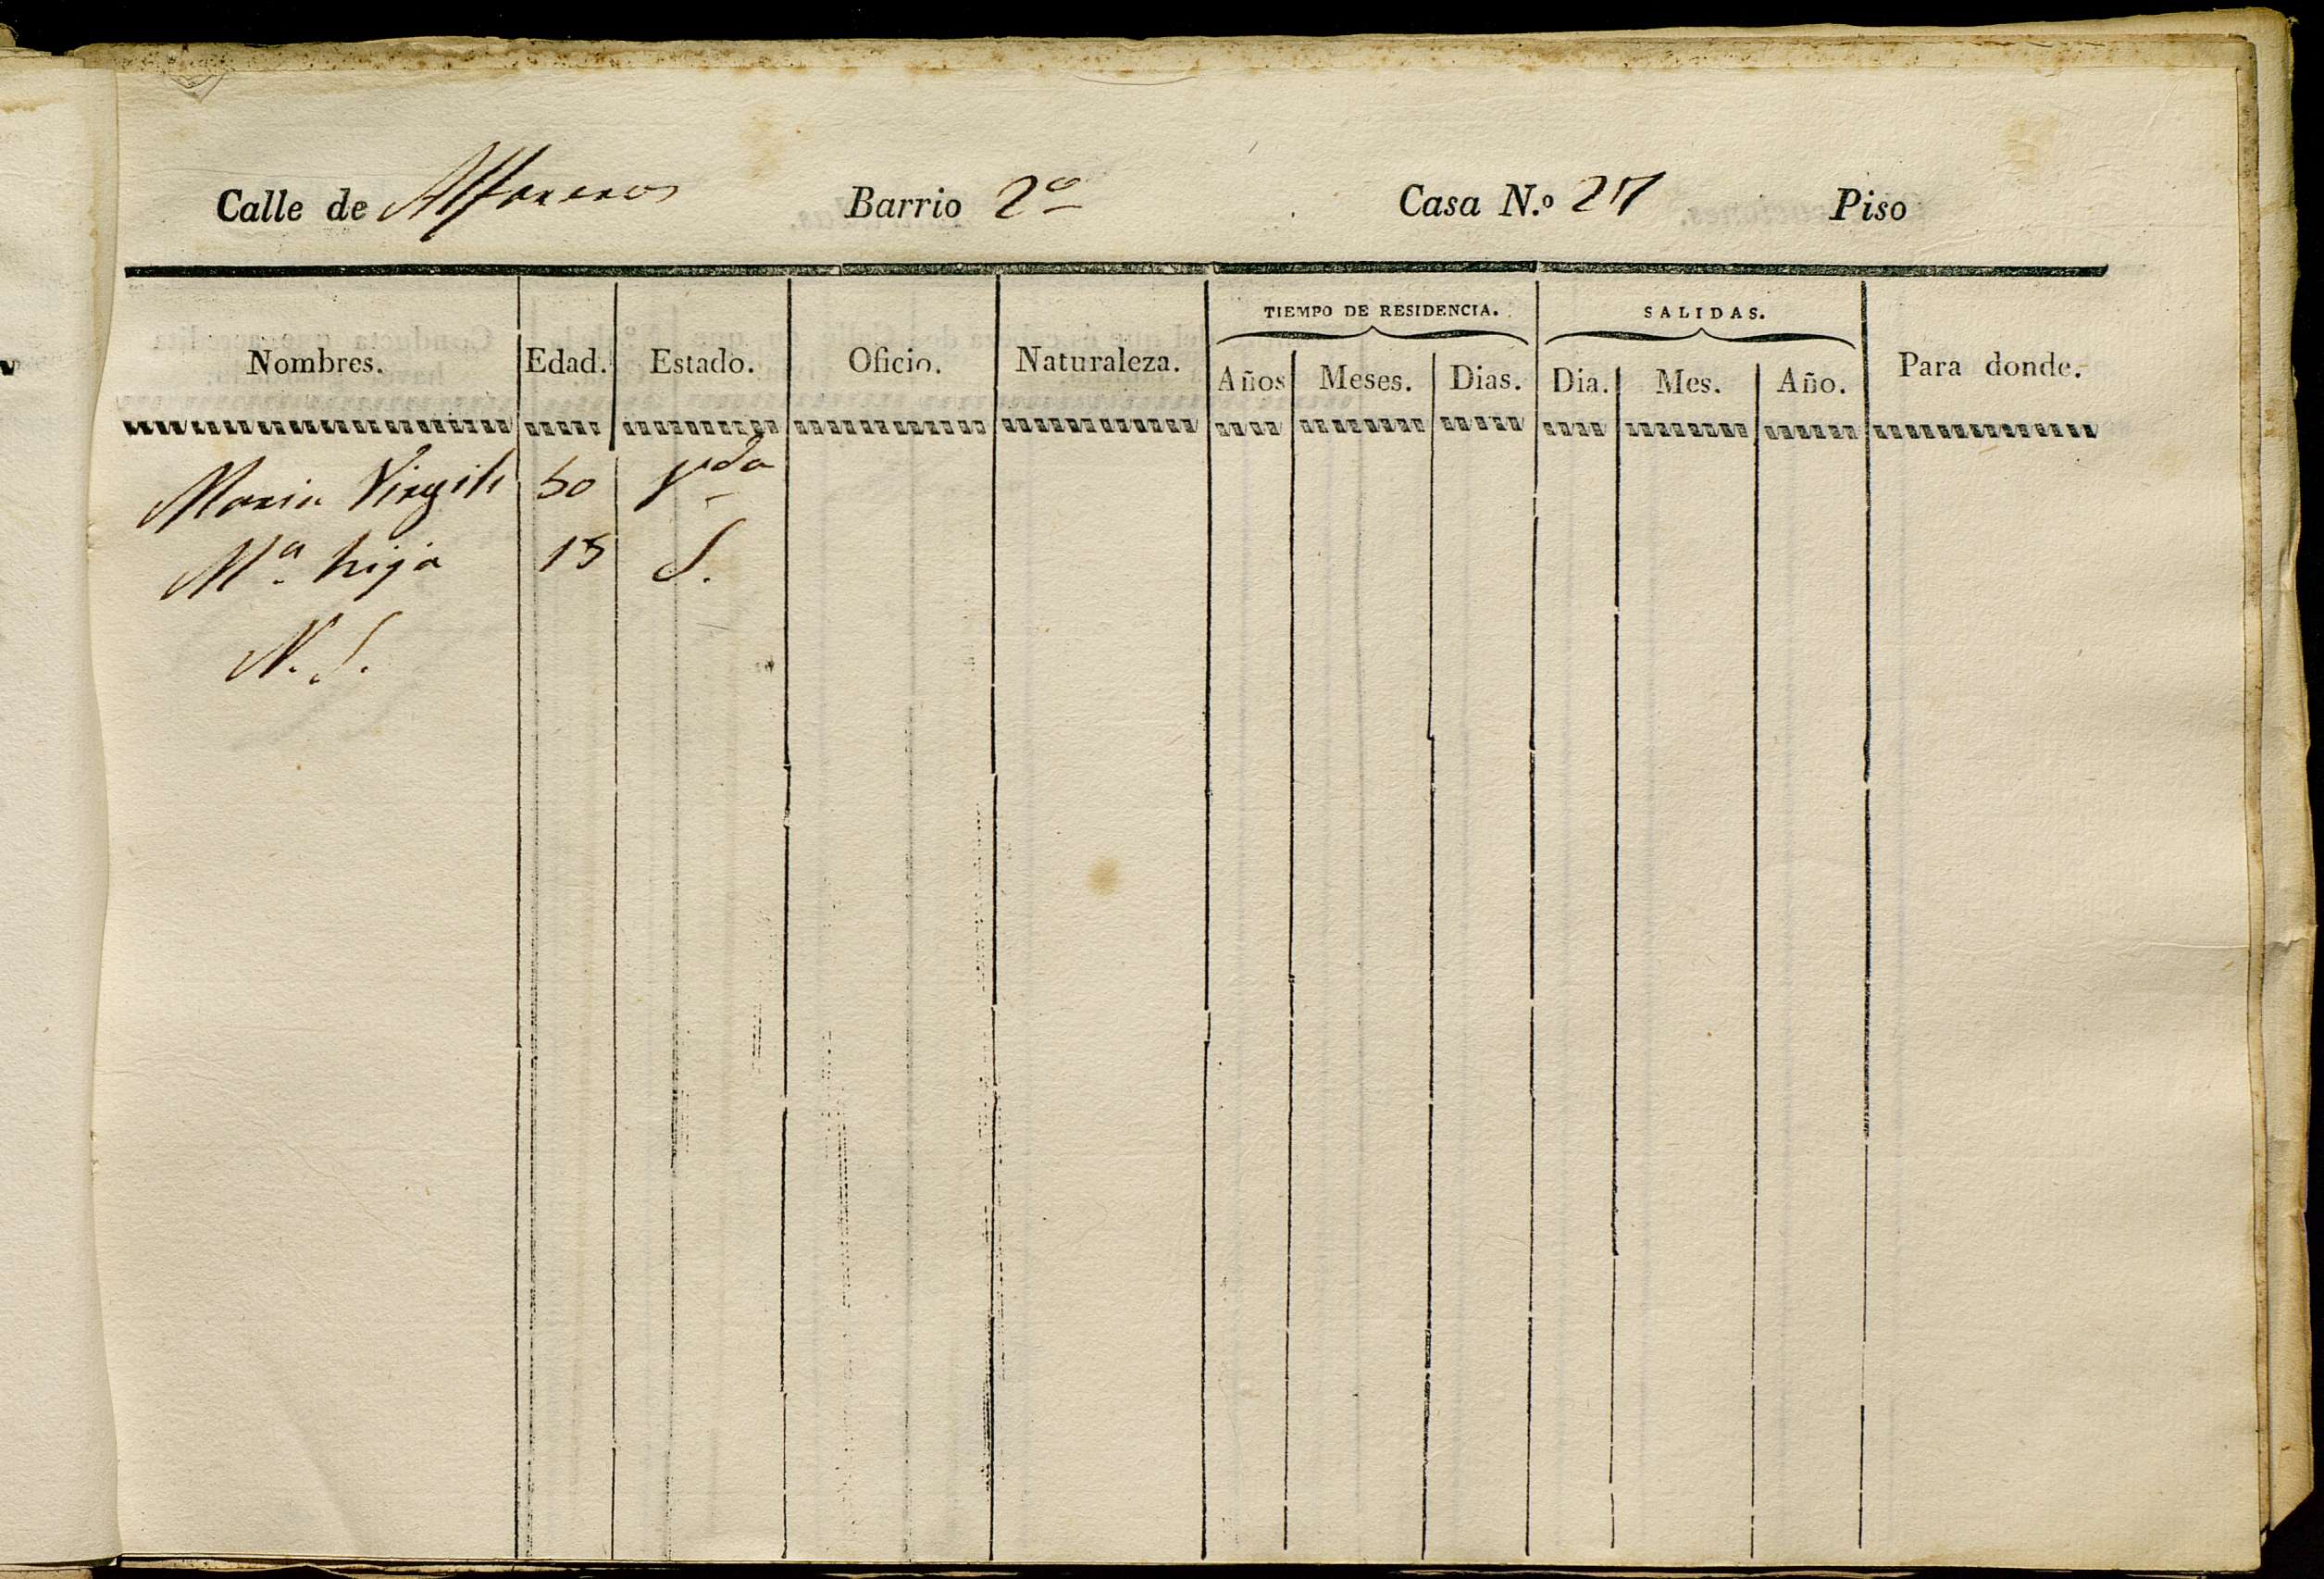 Calle de Alfareros Barrio 2º Casa N.º 27 Piso
TIEMPO DE RESIDENCIA. SALIDAS.
Nombres. Edad. Estado. Oficio. Naturaleza. Años Meses. Dias. Dia. Mes. Año. Para donde.
Maria Virgili 50 Vda
Mª hija 15 S.
N. S.